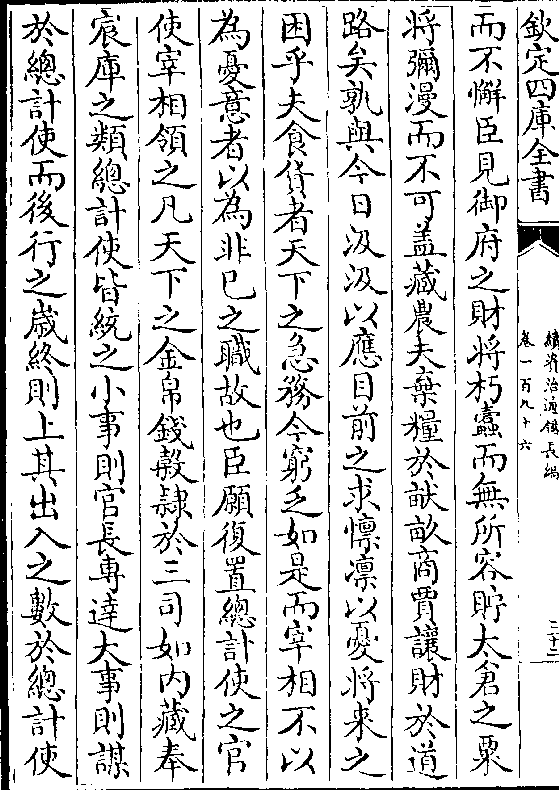 欽定四庫全書
續資治通鑑長編
卷一百九十六
二十二
而不懈臣見御府之財將朽蠹而無所容貯太倉之粟
將彌漫而不可蓋藏農夫棄糧於畎畝商賈讓財於道
路矣孰與今日汲汲以應目前之求懔凛以憂將来之
困乎夫食貨者天下之急務今窮乏如是而宰相不以
為憂意者以為非已之職故也臣願復置總計使之官
使宰相領之凡天下之金帛錢穀隷於三司如内藏奉
宸庫之類總計使皆統之小事則官長專達大事則謀
於總計使而後行之嵗終則上其出入之數於總計使